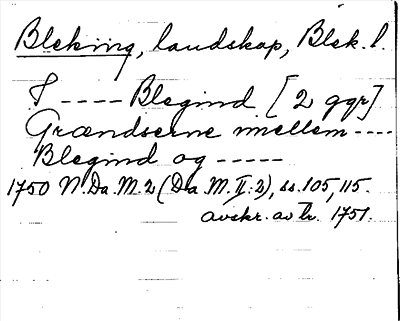 Bleking, landskap, Blek. l.
I ---- Blegind [2 ggr]
Grændserne mellem ----
Blegind og -----
1750 N.Da.M.2 (Da.M.II:2), ss.105, 115.
avskr. av tr. 1751.